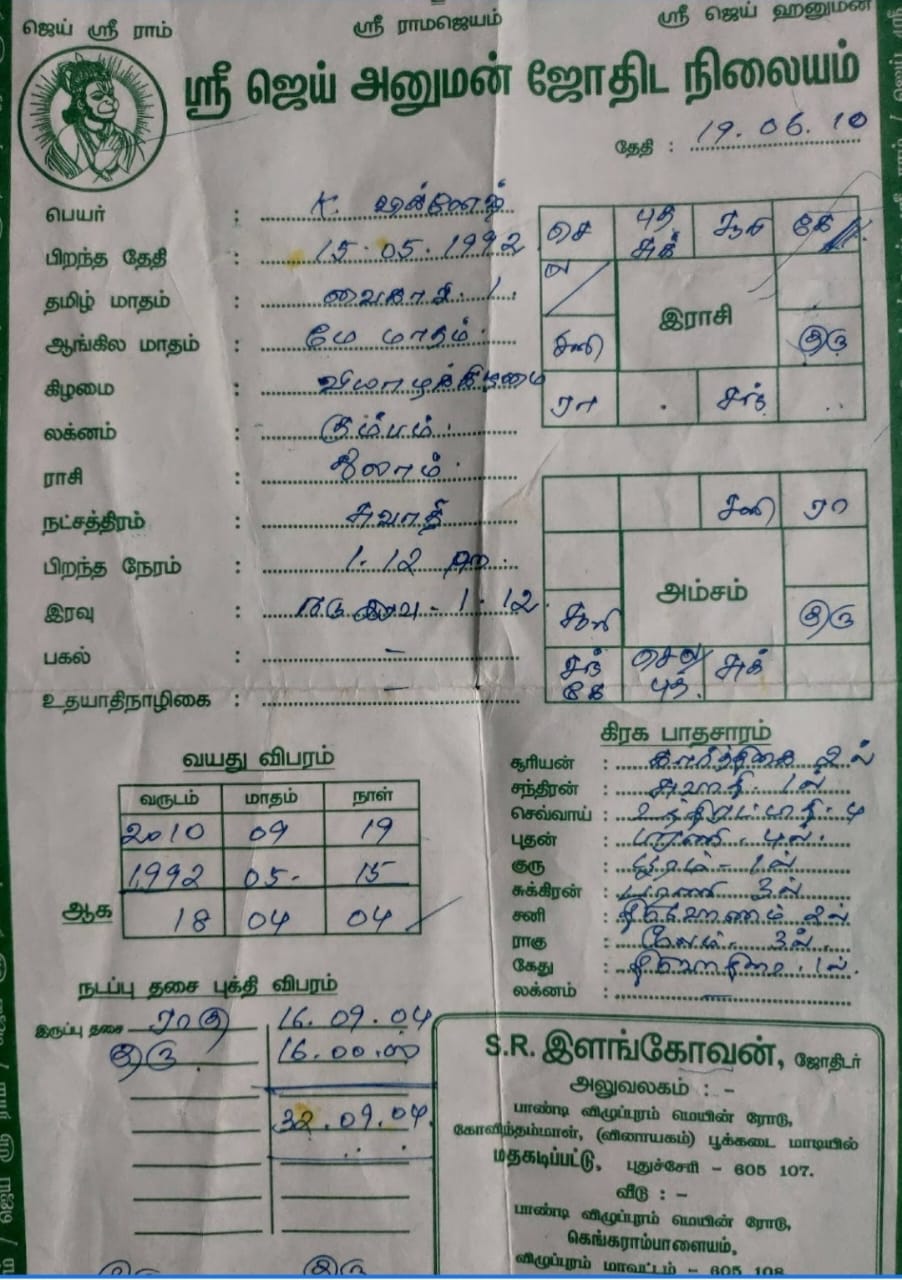 ஜெய் ஸ்ரீ ராம் ஸ்ரீ ராமஜெயம் ஸ்ரீ ஜெய் ஹனுமன்
ஸ்ரீ ஜெய் அனுமன் ஜோதிட நிலையம்
தேதி : 19.06.10
பெயர் : K.
பிறந்த தேதி : 15.05.1992
தமிழ் மாதம் : வைகாசி 1
ஆங்கில மாதம் : மே மாதம்
கிழமை : வியாழக்கிழமை
லக்னம் : கும்பம்
ராசி : துலாம்
நட்சத்திரம் : சுவாதி
பிறந்த நேரம் : 1.12
இரவு : நடு இரவு - 1.12
பகல் : -
உதயாதிநாழிகை : -
செ புத சுக் சூரி கே
ல
இராசி
சனி குரு
ரா சந்
சனி ரா
அம்சம்
சூரி குரு
சந் கே செவ் புத் சுக்
வயது விபரம்
வருடம் மாதம் நாள்
2010 09 19
1992 05 - 15
ஆக 18 04 04
கிரக பாதசாரம்
சூரியன் : கார்த்திகை 2ல்
சந்திரன் : சுவாதி 1ல்
செவ்வாய் : உத்திரட்டாதி 4
புதன் : பரணி 4ல்
குரு : பூரம் - 1ல்
சுக்கிரன் : பரணி 3ல்
சனி : திருவோணம் 2ல்
ராகு : மூலம் 3ல்
கேது : திருவாதிரை 1ல்
லக்னம் : -
நடப்பு தசை புக்தி விபரம்
இருப்பு தசை ராகு 16.09.04
குரு 16.00.00
32.09.04
குரு குரு
S.R. இளங்கோவன், ஜோதிடர்
அலுவலகம் : -
பாண்டி விழுப்புரம் மெயின் ரோடு,
கோவிந்தம்மாள், (வினாயகம்) பூக்கடை மாடியில்
மதகடிப்பட்டு, புதுச்சேரி - 605 107.
வீடு : -
பாண்டி விழுப்புரம் மெயின் ரோடு,
கெங்கராம்பாளையம்,
விழுப்புரம் மாவட்டம் - 605 108